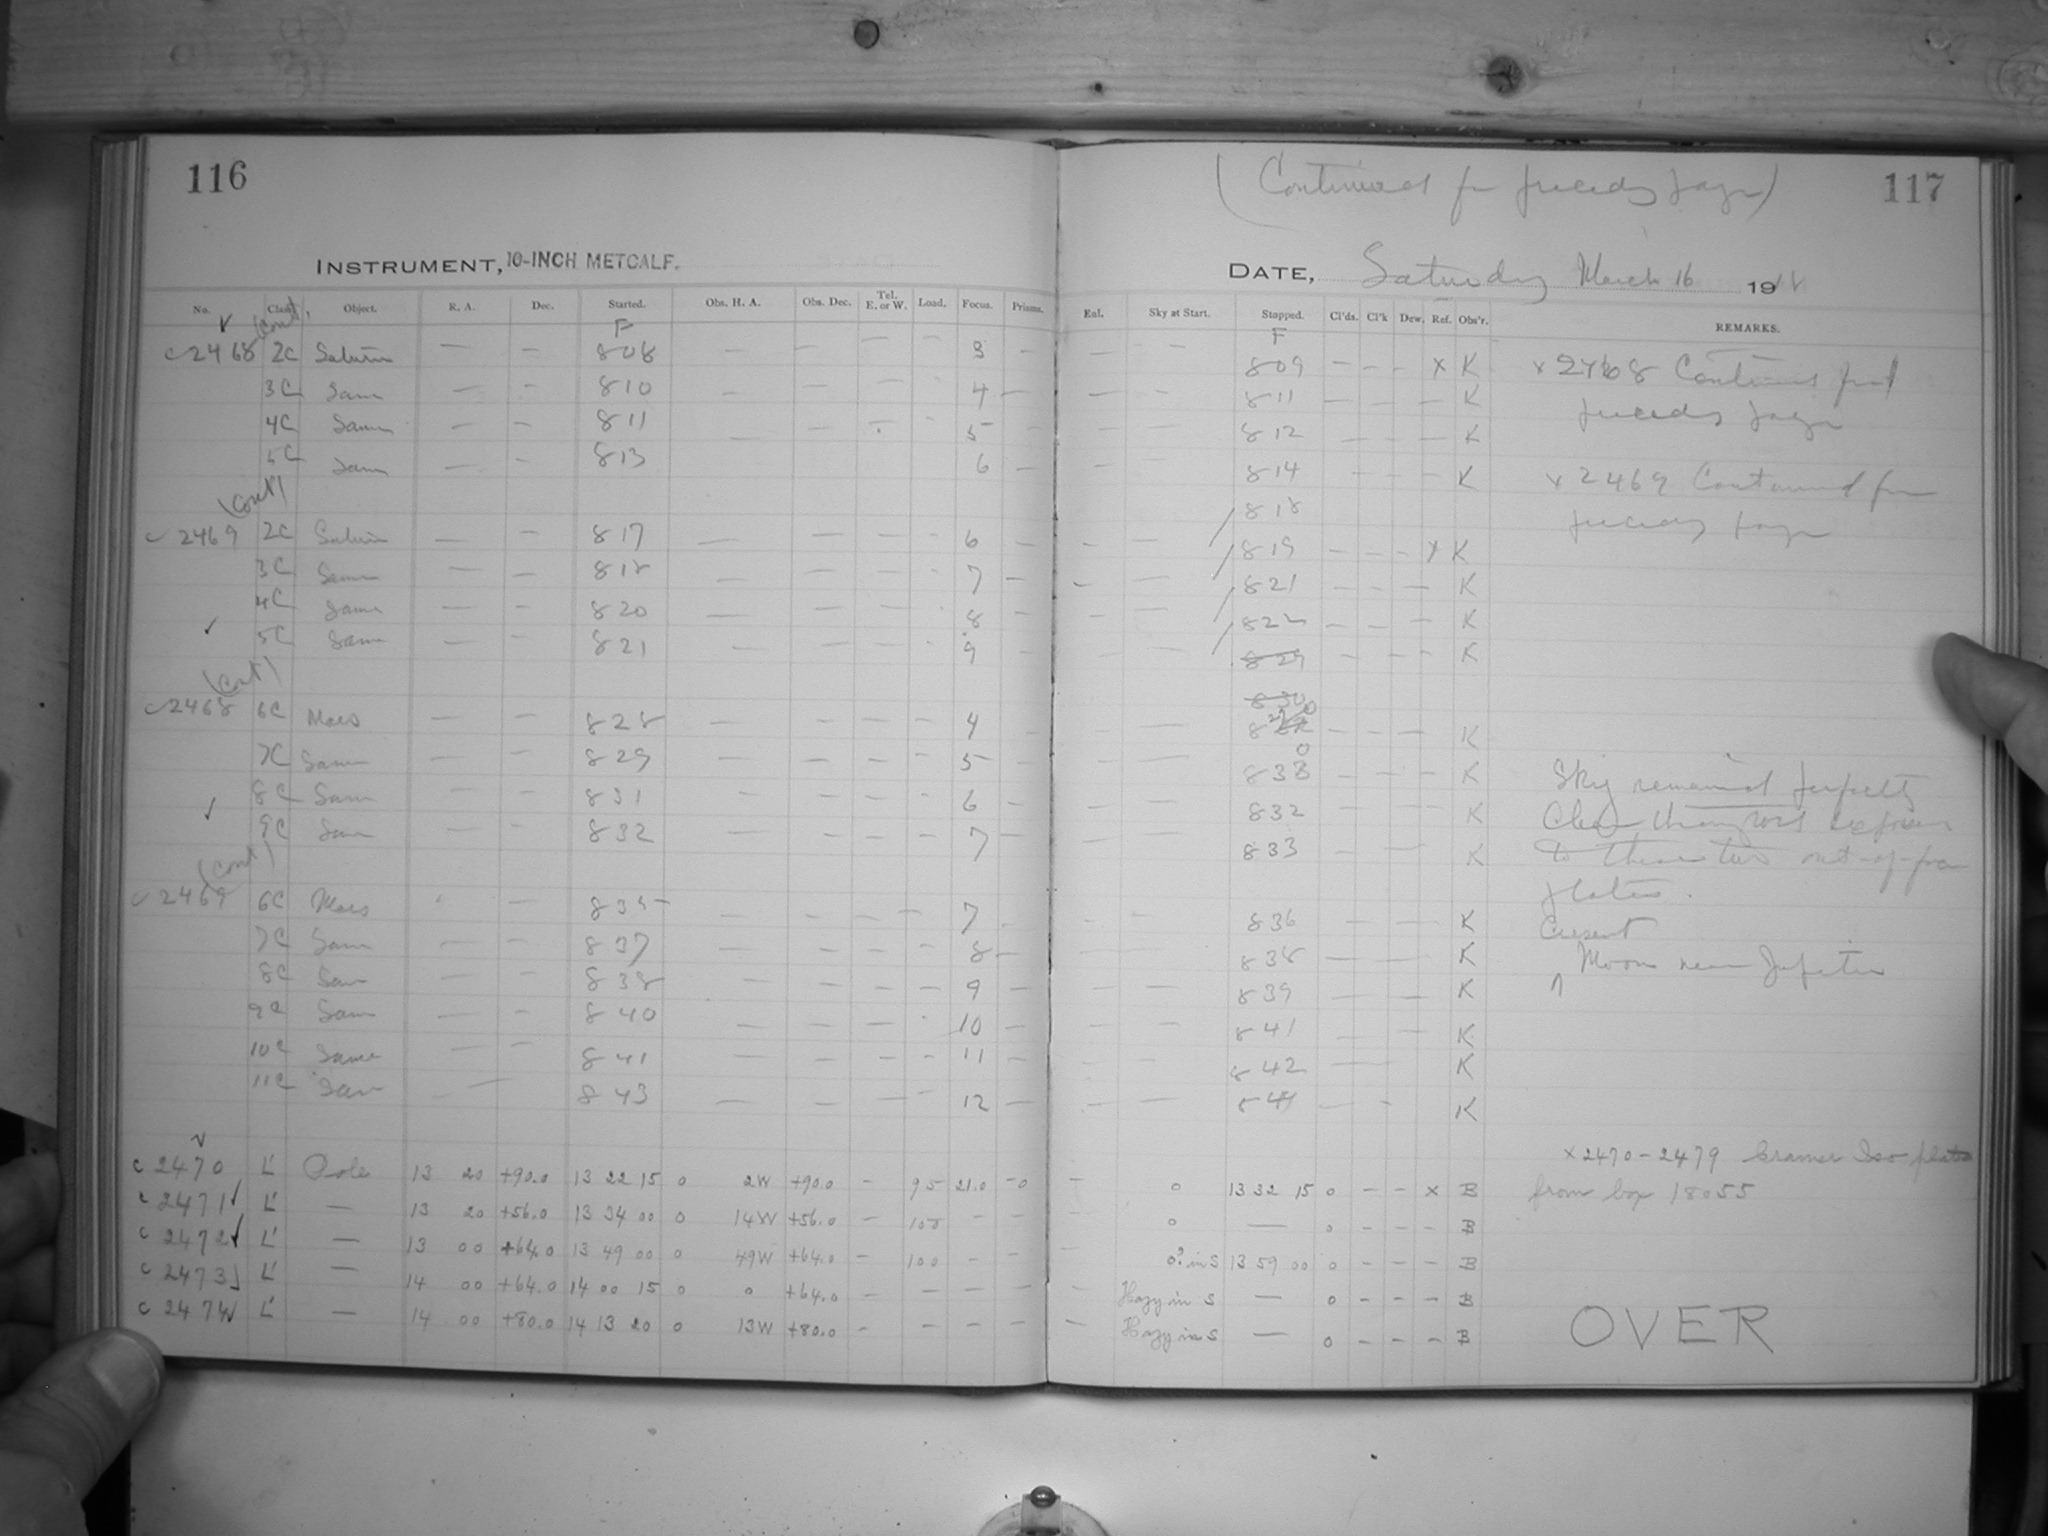 116
INSTRUMENT, 10-INCH METCALF.
No. Class Object. R. A. Dec. Started. Obs. H. A. Obs. Dec. Tel. E. or W. Load. Focus. Prisms.
(Cont.
F
c 2468 2C Saturn — — 8 08 — — — — 3 —
3C Same — — 8 10 — — — — 4 —
4C Same — — 8 11 — — — 5 —
5C Same — — 8 13 — — — — 6 —
(Cont)
c 2469 2C Saturn — — 8 17 — — — — 6 —
3C Same — — 8 18 — — — - 7 —
4C Same — — 8 20 — — — - 8 —
5C Same — — 8 21 — — — - 9 —
(Cont)
c 2468 6C Mars — — 8 28 — — — - 4
7C Same — — 8 29 — — — - 5 —
8C Same — — 8 31 — — — - 6 —
9C Same — — 8 32 — — — - 7 —
(Cont)
c 2469 6C Mars — 8 35 — — — — 7 -
7C Same — — 8 37 — — — — 8 -
8C Same — — 8 38 — — — — 9 —
9C Same — — 8 40 — — — - 10 —
10C Same — — 8 41 — — — - 11 —
11C Same — — 8 43 — — — - 12 —
c 2470 L' Pole 13 20 +90.0 13 22 15 0 2W +90.0 — 95 21.0 -0
c 2471 L' — 13 20 +56.0 13 34 00 0 14W +56.0 — 100 - -
c 2472 L' — 13 00 +64.0 13 49 00 0 49W +64.0 — 100 - -
c 2473 L' — 14 00 +64.0 14 00 15 0 0 +64.0 - - - -
c 2474 L' — 14 00 +80.0 14 13 20 0 13W +80.0 - - - -
(Continued fr preceding page) 117
DATE, Saturday March 16 19
Eal. Sky at Start. Stopped. Cl'ds. Cl'k Dew. Ref. Obs'r. REMARKS.
F
— — 8 09 - - - x K x 2468 Continued from
— — 8 11 — — — K preceding page
— — 8 12 — — — K
— — 8 14 — — K x 2469 Continued fr
8 18 preceding page
- — 8 19 - - - x K
- — 8 21 — — K
— 8 22 — — — K
— — 8 29 — — — K
8 30
— 8 29 - - - K
— 8 30 — — — K Sky remained perfectly
— 8 32 — — K Clear throughout exposures
— — 8 33 — — K to these two out-of-focus
plates.
— - 8 36 — — K Crescent
— — 8 38 — — K Moon near Jupiter
— — 8 39 — — K
— — 8 41 — — K
— — 8 42 — K
— — 8 44 — - K
x 2470 - 2479 Cramer Iso plates
— 0 13 32 15 0 - - x B from box 18055
0 — 0 - - - B
0? in S 13 59 00 0 - - - B
— Hazy in S — 0 - - - B
— Hazy in S — 0 - - - B
OVER